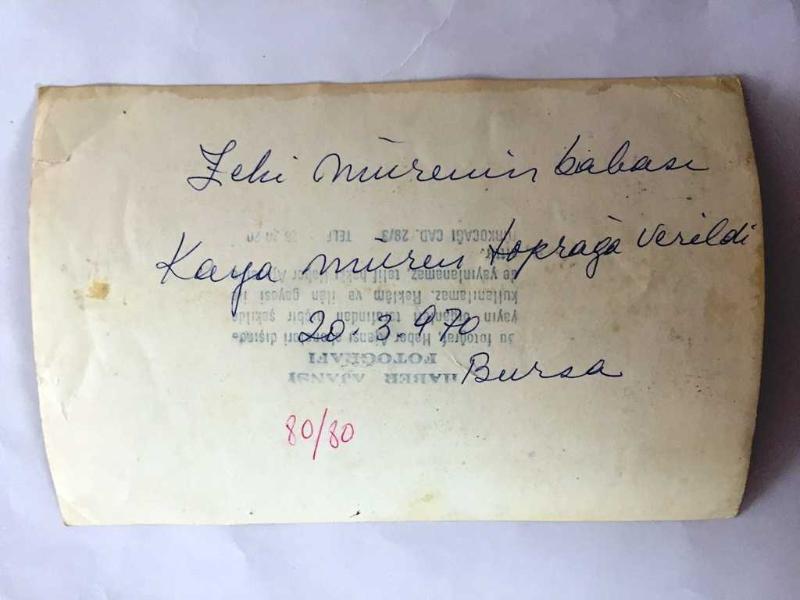 Zeki Mürenin babası
Kaya Müren toprağa verildi
20.3.970
Bursa
80/80
HABER AJANSI
FOTOĞRAFI
Bu fotoğraf Haber Ajansı aboneleri dışında
yayın organları tarafından hiçbir şekilde
kullanılamaz. Reklâm ve ilân gayesi i
de yayınlanamaz, telif hakkı Haber
TÜRKOCAĞI CAD. 28/3 TELF